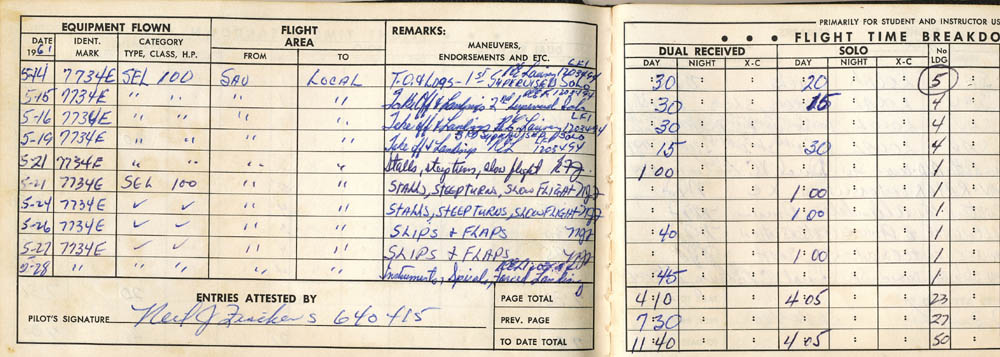 EQUIPMENT FLOWN
FLIGHT AREA
REMARKS:
DATE 1961 IDENT. MARK CATEGORY TYPE, CLASS, H.P. FROM TO MANEUVERS, ENDORSEMENTS AND ETC.
5-14 7734E SEL 100 SAU LOCAL T.O.& Ldgs - 1st SUPERVISED SOLO CFI 1203494
5-15 7734E " " " " Take Off & Landings 2nd Supervised Solo 1203494
5-16 7734E " " " " Take off & Landings CFI 1203494
5-19 7734E " " " " Take off & Landings 3RD SUPERVISED SOLO 1203494
5-21 7734E " " " " Stalls, steep turns, slow flight
5-21 7734E SEL 100 " " STALLS, STEEP TURNS, SLOW FLIGHT NJZ
5-24 7734E ✓ ✓ " " STALLS, STEEP TURNS, SLOW FLIGHT NJZ
5-26 7734E ✓ ✓ " " SLIPS & FLAPS NJZ
5-27 7734E ✓ ✓ " " SLIPS & FLAPS NJZ
5-28 " " " " " Instruments, Spirals, Forced Landing
ENTRIES ATTESTED BY
PILOT'S SIGNATURE Neil J S 640415
PAGE TOTAL
PREV. PAGE
TO DATE TOTAL
PRIMARILY FOR STUDENT AND INSTRUCTOR US
• • • FLIGHT TIME BREAKDO
DUAL RECEIVED SOLO No LDG
DAY NIGHT X-C DAY NIGHT X-C
:30 :20 5
:30 :15 4
:30 4
:15 :30 4
1:00 1
1:00 1
1:00 1
:40 1
1:00 1
:45 1
4:10 4:05 23
7:30 27
11:40 4:05 50